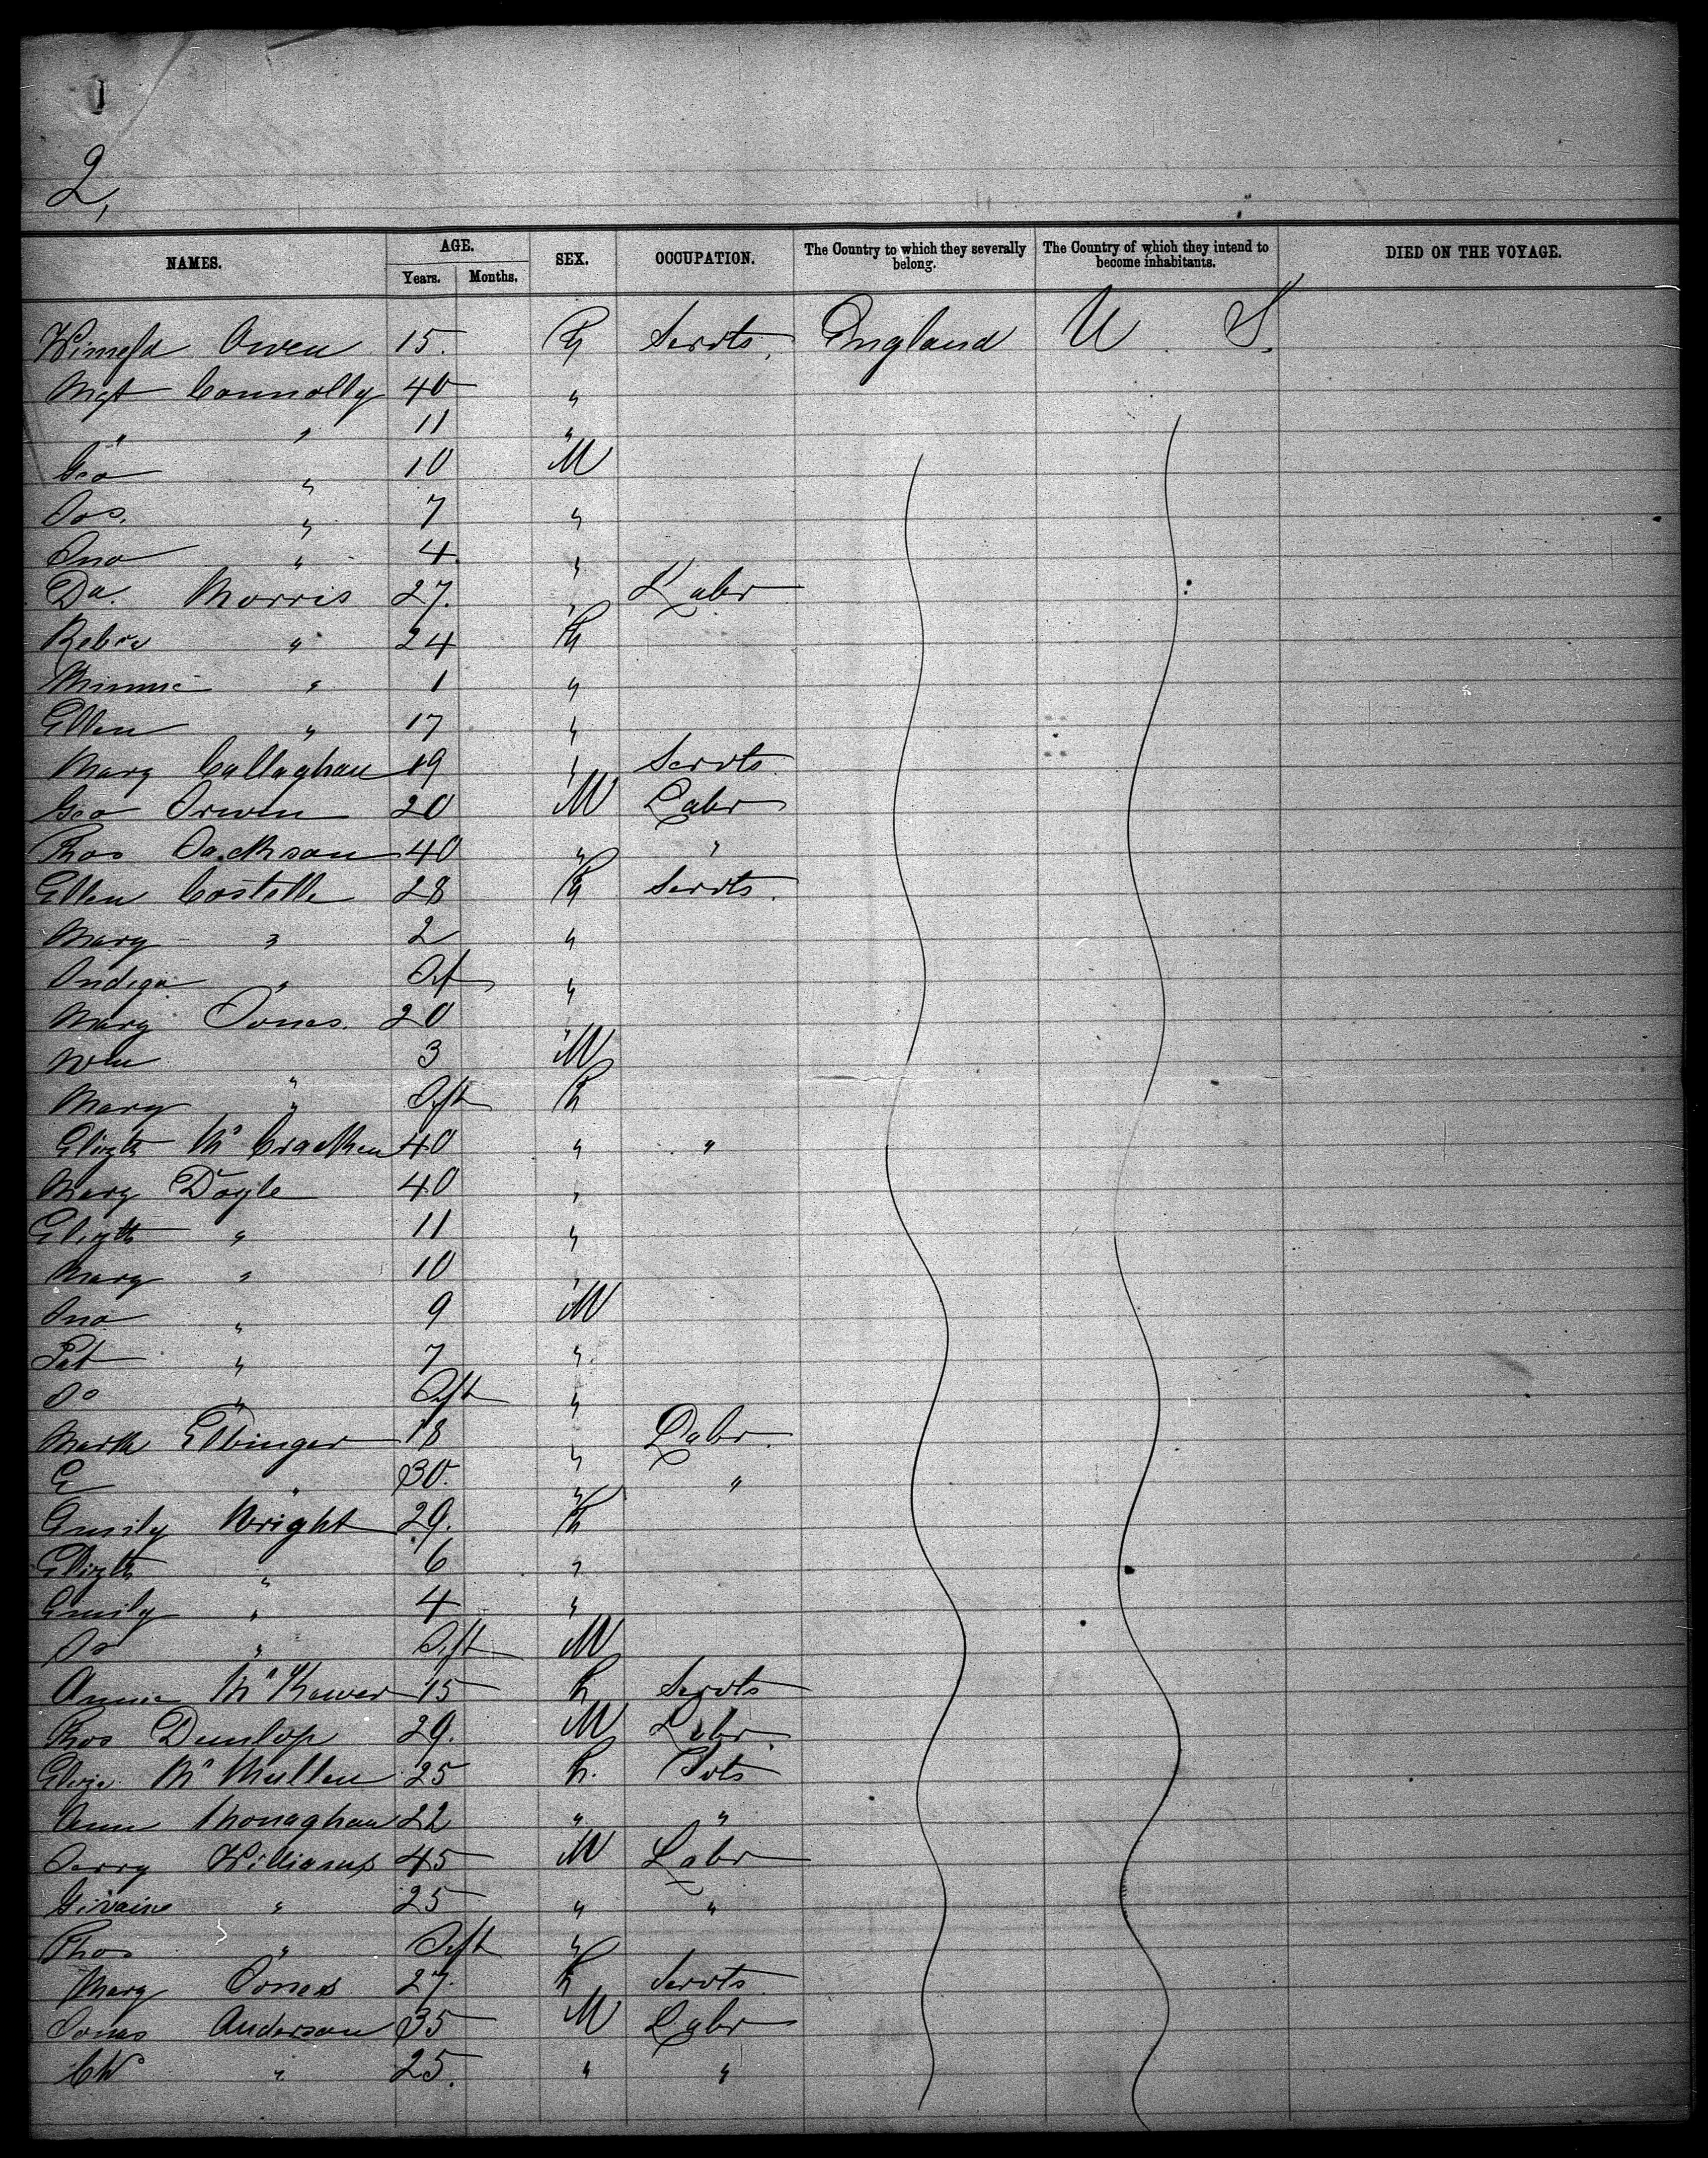 2,
NAMES. AGE. Years. Months. SEX. OCCUPATION. The Country to which they severally belong. The Country of which they intend to become inhabitants. DIED ON THE VOYAGE.
Owen 15. F Servts. England U. S.
Mgt Connolly 40 "
" " 11 "
Geo " 10 M
Jos. " 7 "
Jno " 4 "
Da. Morris 27. " Labr
Rebca " 24 F
Minnie " 1 "
Ellen " 17 "
Mary Callaghan 19 " Servts
Geo Orwin 20 M Labr
Thos Jackson 40 " "
Ellen Costello 28 F Servts.
Mary " 2 "
" Inft "
Mary Jones. 20 "
Wm " 3 M
Mary " Inft F
Elizth Mc Cracken 40 " "
Mary Doyle 40 "
Elizth " 11 "
Mary " 10 "
Jno " 9 M
Pat " 7 "
Jo " Inft "
Mark Elbinger 18 " Labr.
E " 30. " "
Emily Wright 29. F
Elizth " 6 "
Emily " 4 "
Jo " Inft M
Annie 15 F Servts
Thos Dunlop 29. M Labr.
Eliza Mc Mullen 25 F. Svts
Ann Monaghan 22 " "
Jerry Williams 45 M Labr
" 25 " "
Thos " Inft "
Mary Jones 27. F Servts
James Anderson 35 M Labr
CW " 25. " "